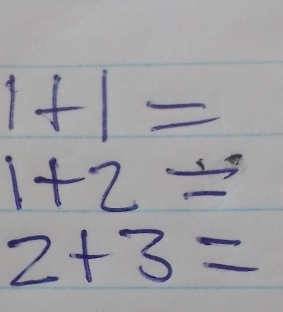 1+1=
1+2=
2+3=